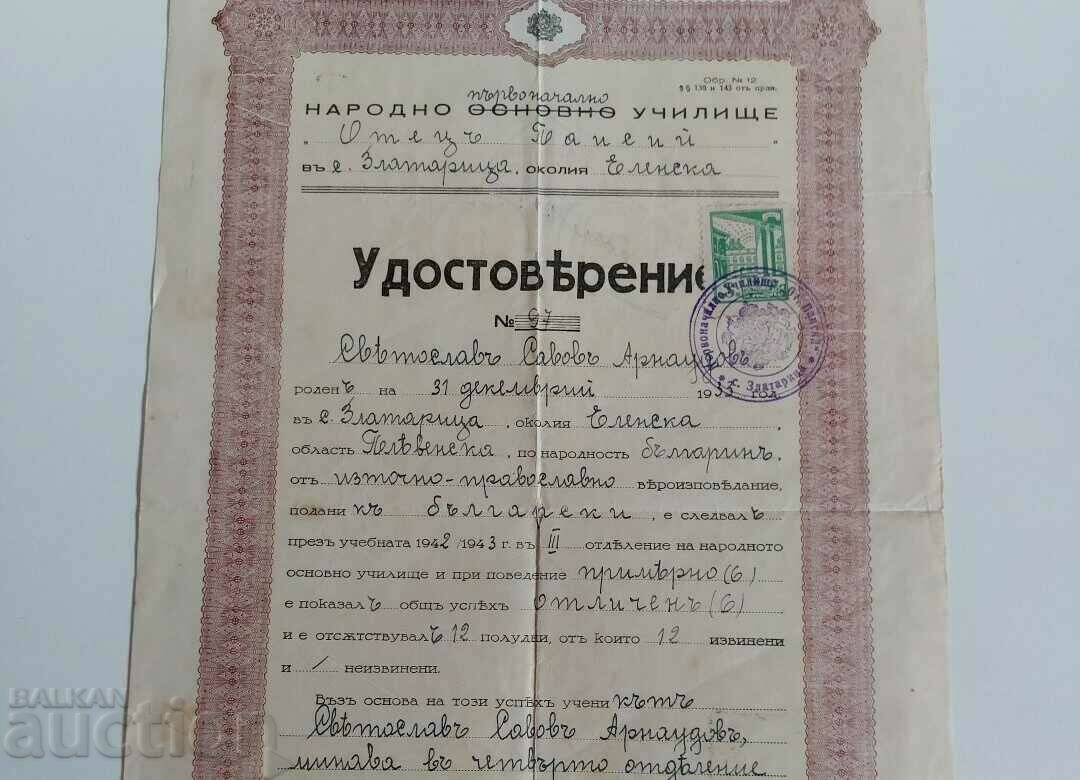 Обр. № 12
§§ 138 и 143 отъ прав.
първоначално
НАРОДНО ОСНОВНО УЧИЛИЩЕ
„Отецъ Паисий“
въ с. Златарица, околия Еленска
Удостовѣрение
№ 97
Свѣтославъ Савовъ Арнаудовъ
роденъ на 31 декемврий 1933 год.
въ с. Златарица, околия Еленска,
область Плѣвенска, по народность българинъ,
отъ източно-православно вѣроизповѣдание,
поданикъ български, е следвалъ
презъ учебната 1942/1943 г. въ III отдѣление на народното
основно училище и при поведение примѣрно (6)
е показалъ общъ успѣхъ отличенъ (6)
и е отсѫтствувалъ 12 полудни, отъ които 12 извинени
и / неизвинени.
Възъ основа на този успѣхъ ученикътъ
Свѣтославъ Савовъ Арнаудовъ,
минава въ четвърто отдѣление
с. Златарица
BALKAN
auction